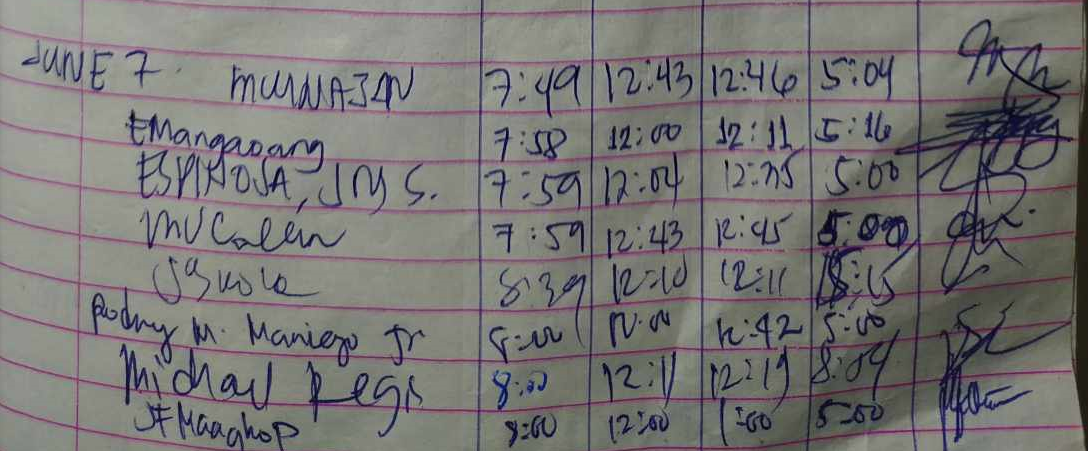 JUNE 7 7:49 12:43 12:46 5:04
EMangaoang 7:58 12:00 12:11 5:16
ESPINOSA, JMS. 7:59 12:04 12:35 5:00
7:59 12:43 12:45 5:00
8:39 12:10 12:11 5:15
Rodny M. Maniego Jr 8:00 12:00 12:42 5:00
Michael Regis 8:00 12:11 12:19 8:04
JFMaaghop 8:00 12:00 1:00 5:00